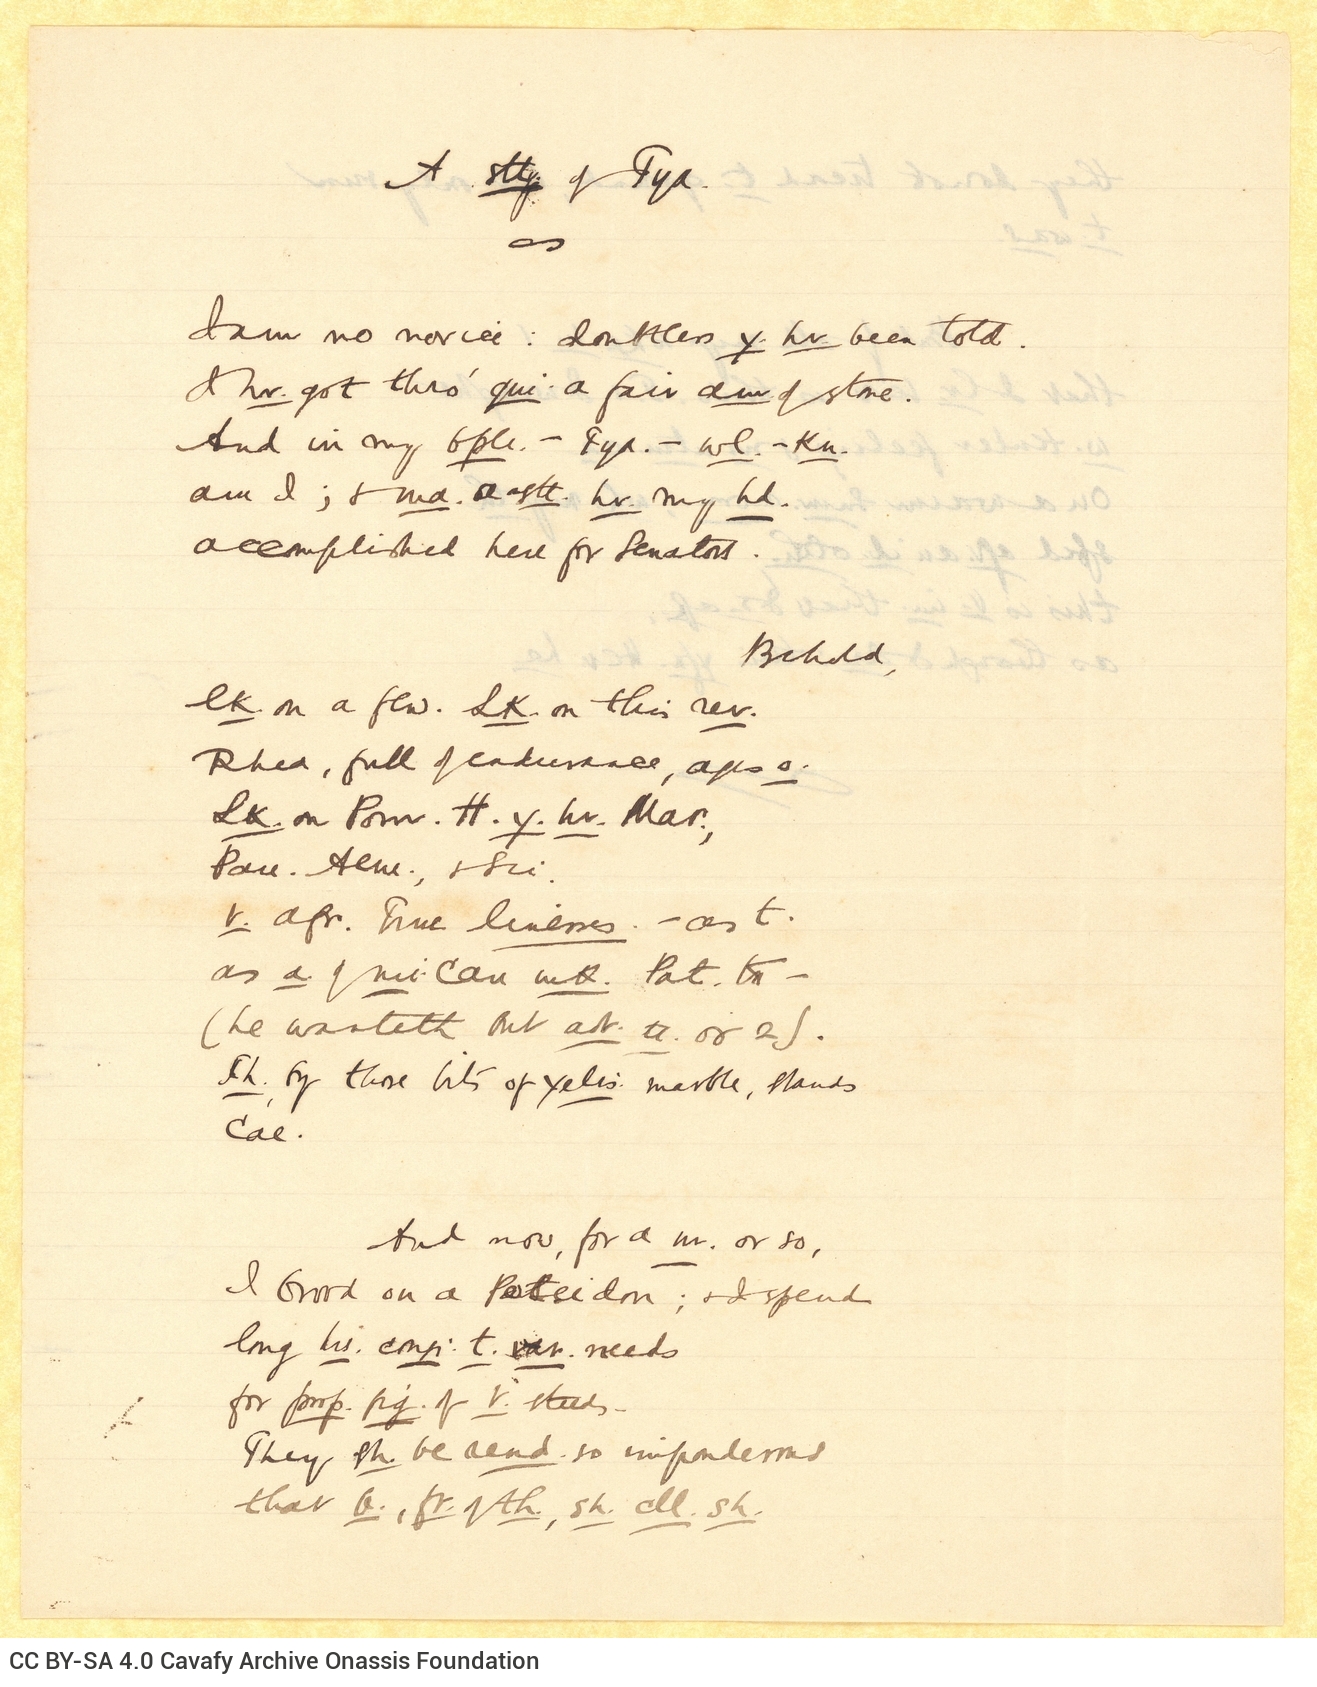 A sttg. of Tya.
I am no novice : doubtless y. hv. been told.
I hv. got thro' qui. a fair am of stone.
And in my bple. – Tya. – wl. – Kn.
am I ; & ma. a stt. hv. my hd.
accomplished here for Senators.
Behold,
lk. on a few. Lk. on this rev.
Rhea, full of endurance, ages o.
Lk. on Pom. H. y. hv. Mar.,
Pau. Aem., & Sci.
V. afr. True linesses. – as t.
as a. of mi. Can mk. Pat. tn –
(he wanteth but adr. tt. or 2).
Th. by those bits of yelis. marble, stands
Cae.
And now, for a m. or so,
I brood on a Poseidon ; & I spend
long hs. consi. t. var. needs
for prop. fig. of V. steeds.
They sh. be rend. so imponderous
that b., fr. of th., sh. cll. sh.
CC BY-SA 4.0 Cavafy Archive Onassis Foundation